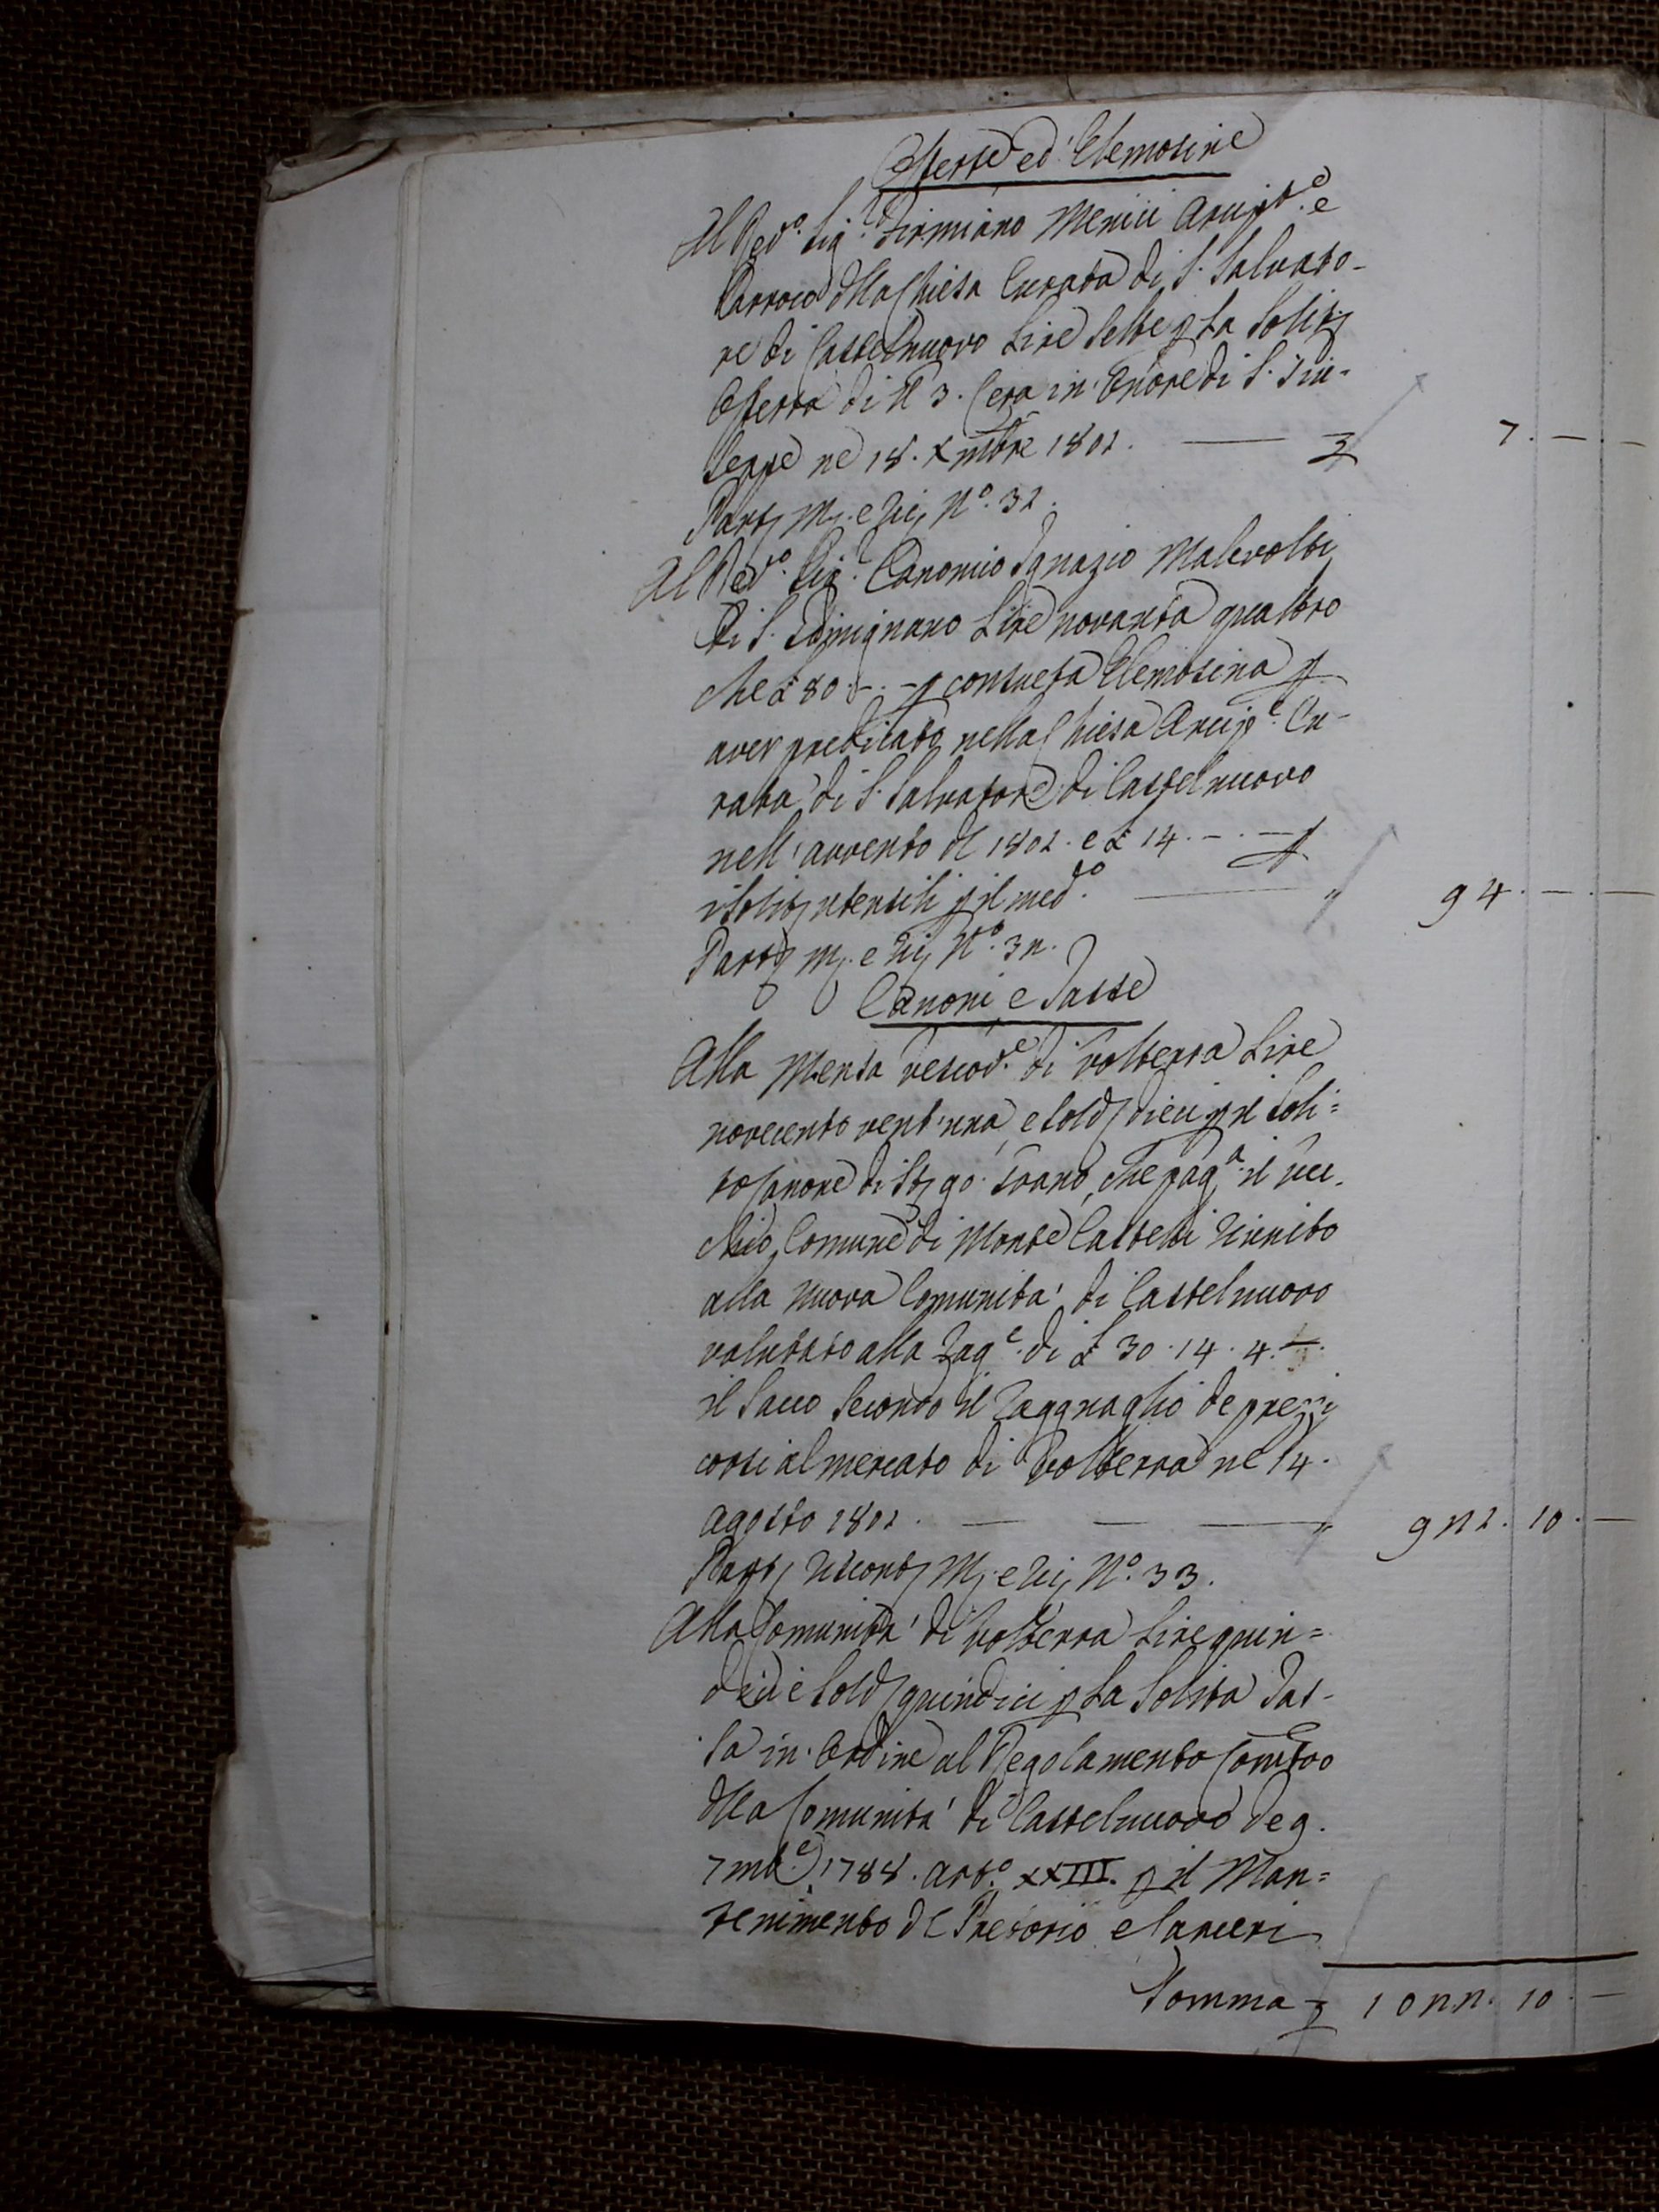 Offerte ed Elemosine
Al Red.o Sig.r Firmiano Menici Arcip.te e
Parroco dlla Chiesa Curata di S. Salvato-
re di Castelnuovo Lire Sette p La Solit.
Offerta di ℔ 3. Cera in Onore di S. Giu-
seppe ne 18. Xmbre 1802. 7. — . —
Part. M. e Ric. N.o 31.
Al Red.o Sig.r Canonico Ignazio Malevolti
Di S. Gimignano Lire novanta quattro
che £ 80. – . – p consueta Elemosina p
aver predicato nella Chiesa Arcip.e Cu-
rata di S. Salvatore di Castelnuovo
nell'avvento dl 1802. e £ 14. – . – p
i soliti utensili p il med.o 94. — . —
Part. M. e Ric. N.o 32.
Canoni e Tasse
Alla Mensa vescov.e di Volterra Lire
novecento vent'una, e sold. dieci p il Soli=
to Canone di St. 90. Grano, che pag.a il vec-
chio Comune di Monte Castelli riunito
alla nuova Comunita' di Castelnuovo
valutato alla Rag.e di £ 30. 14. 4. –
il Sacco Secondo il Ragguaglio de prezzi
corsi al mercato di Volterra ne 14.
agosto 1802. 921. 10. —
Part. Riscont. M. e Ric. N.o 33.
Alla Comunita' di Volterra Lire quin=
dici e sold. quindici p La Solita Tas-
sa in Ordine al Regolamento
dlla Comunita' di Castelnuovo de 9.
7mb.e 1788. art.o XXIII. p il Man=
tenimento dl Pretorio e Carceri
Somma 1022. 10. —